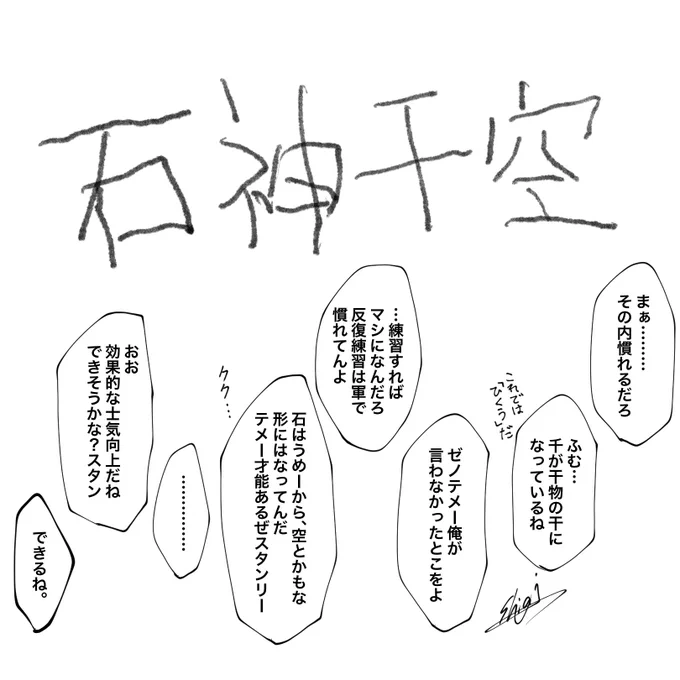 石神干空
まぁ………
その内慣れるだろ
ふむ…
千が干物の干に
なっているね
これでは
「ひくう」だ
ゼノテメー俺が
言わなかったとこをよ
…練習すれば
マシになんだろ
反復練習は軍で
慣れてんよ
石はうめーから、空とかもな
形にはなってんだ
テメー才能あるぜスタンリー
クク…
……………
おお
効果的な士気向上だね
できそうかな？スタン
できるね。